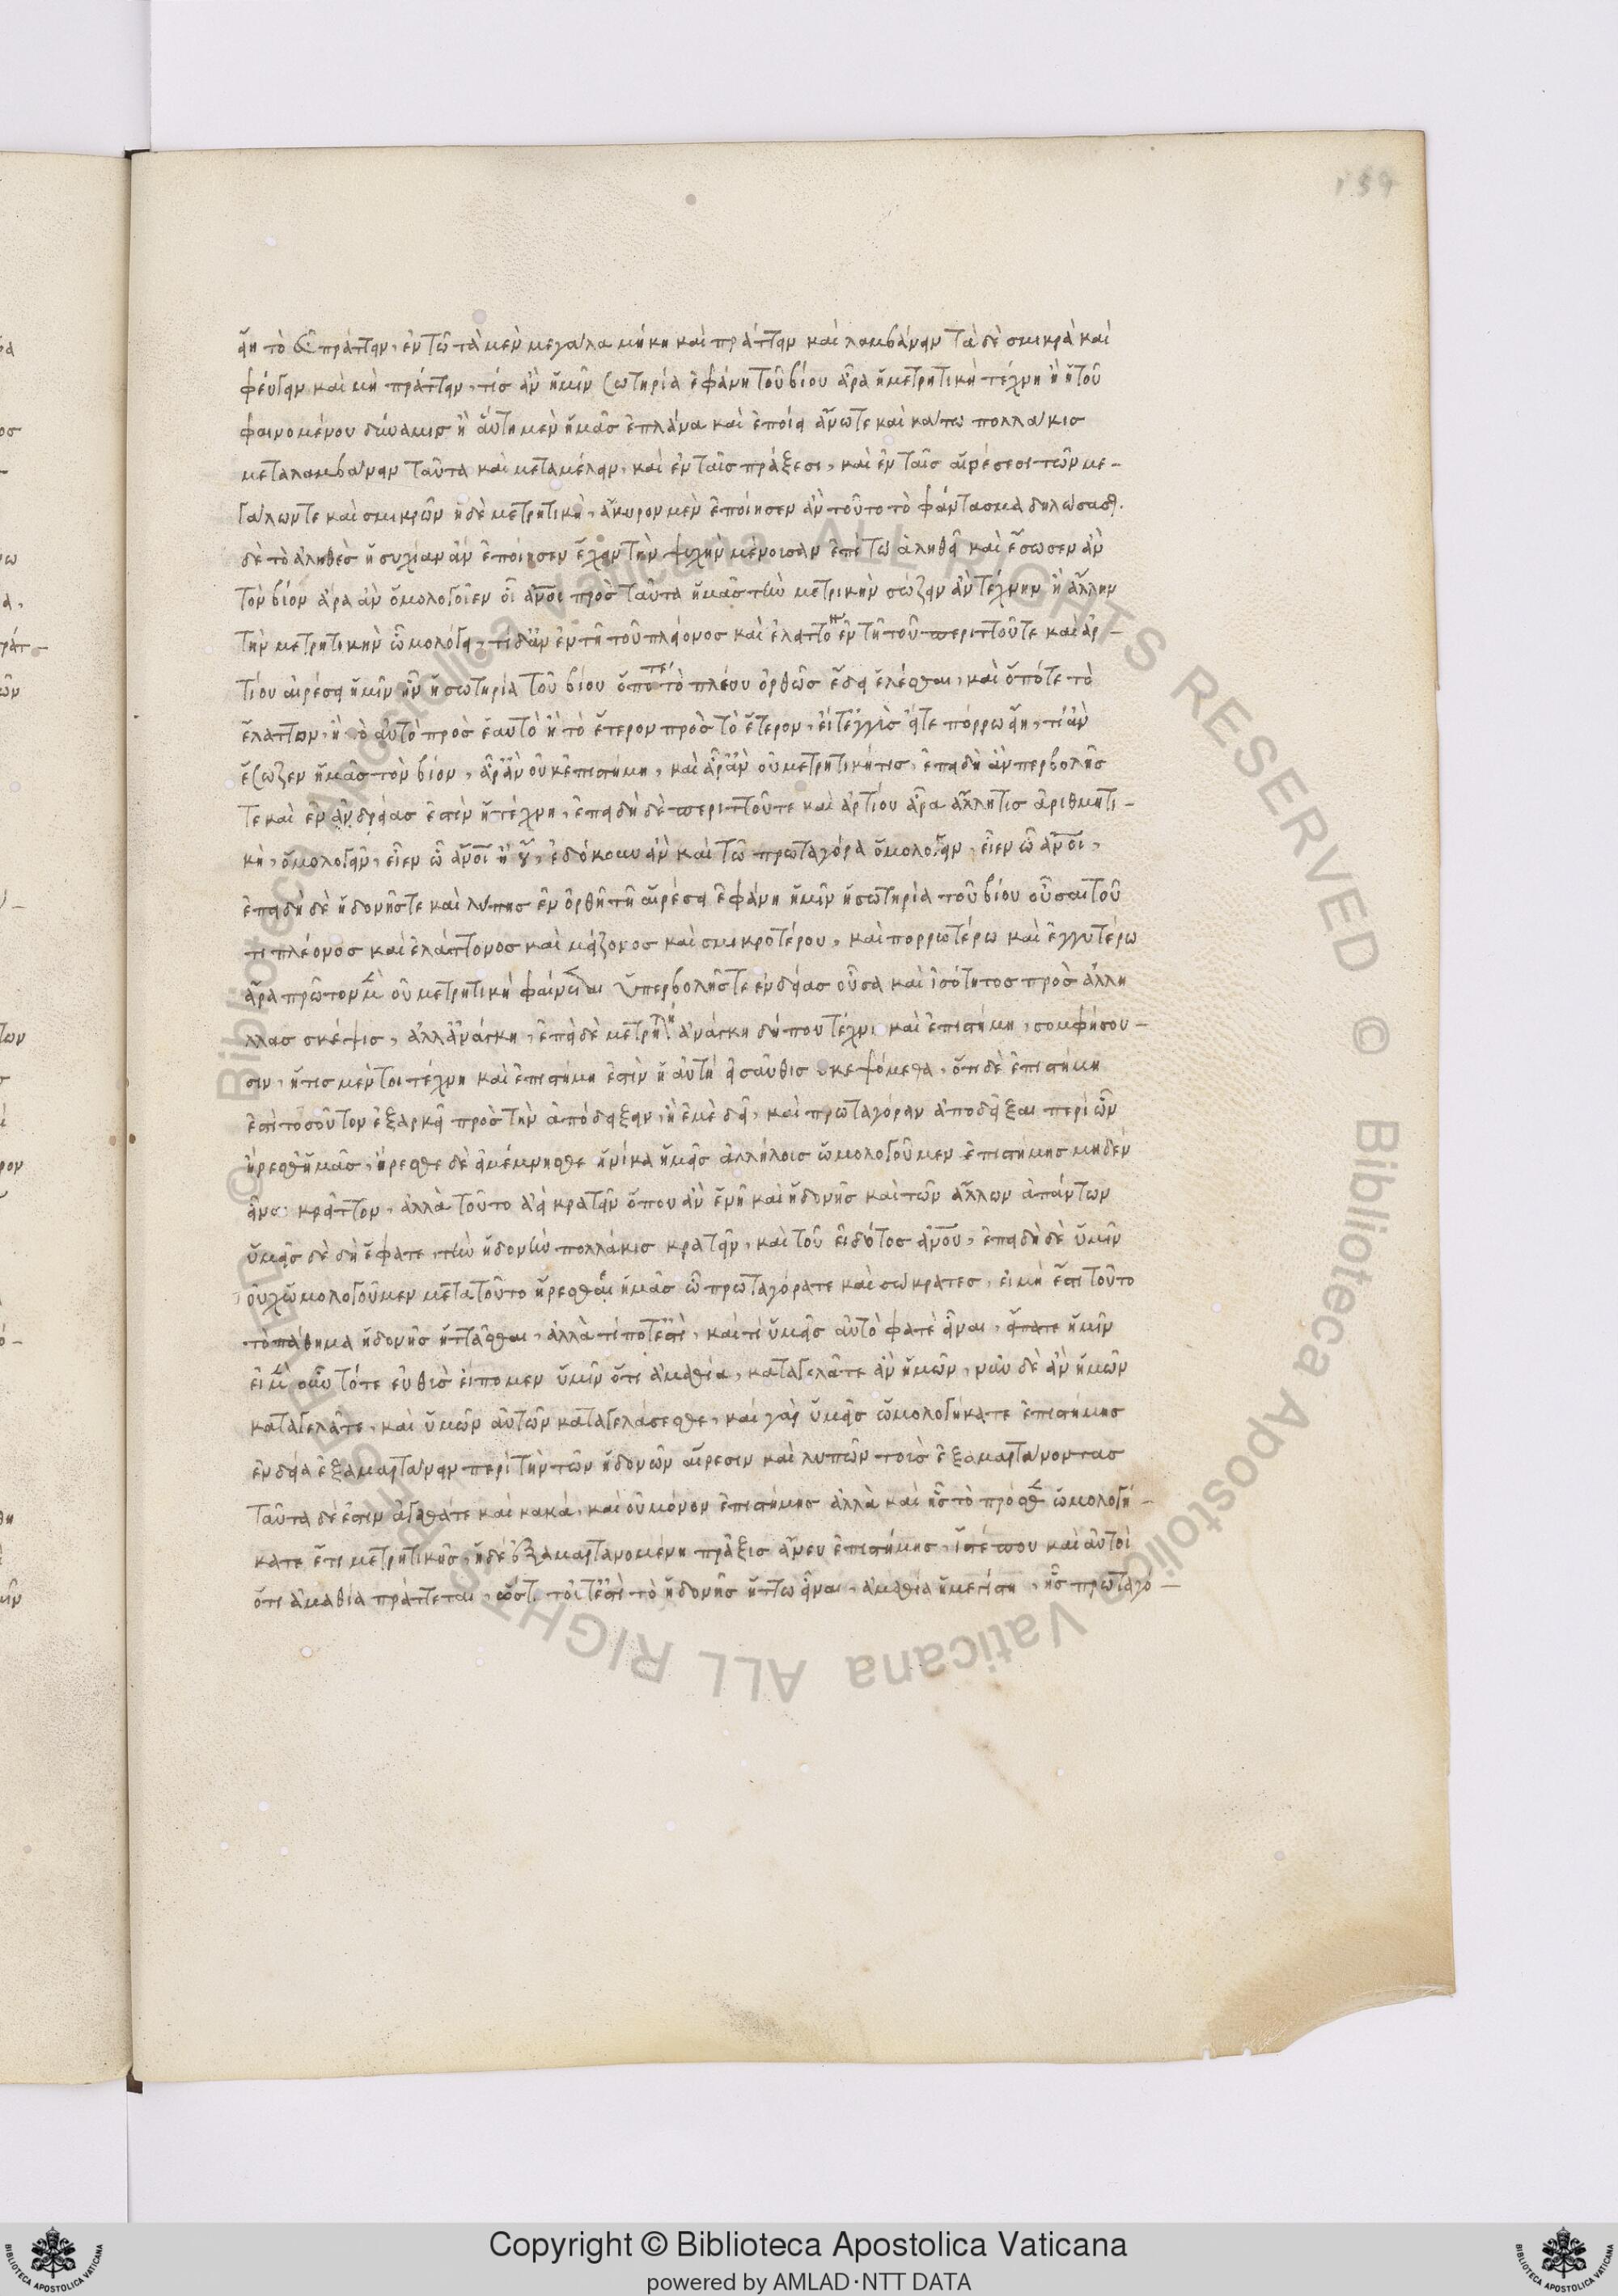 159
εἴη τὸ εὖ πράττειν, ἐν τῶ τὰ μὲν μεγάλα μήκη καὶ πράττειν καὶ λαμβάνειν τὰ δὲ σμικρὰ καὶ
φεύγειν καὶ μὴ πράττειν, τίσ ἂν ἡμῖν σωτηρία ἐφάνη τοῦ βίου ἆρα ἡ μετρητικὴ τέχνη ἢ ἡ τοῦ
φαινομένου δύναμισ ἢ αὕτη μὲν ἡμᾶσ ἐπλάνα καὶ ἐποίει ἄνω τε καὶ κάτω πολλάκισ
μεταλαμβάνειν ταῦτα καὶ μεταμέλειν, καὶ ἐν ταῖσ πράξεσι, καὶ ἐν ταῖσ αἱρέσεσι τῶν με-
γάλων τε καὶ σμικρῶν ἡ δὲ μετρητικὴ, ἄκυρον μὲν ἐποίησεν ἂν τοῦτο τὸ φάντασμα δηλώσασα
δὲ τὸ ἀληθὲσ ἡσυχίαν ἂν ἐποίησεν ἔχειν τὴν ψυχὴν μένουσαν ἐπὶ τῶ ἀληθεῖ καὶ ἔσωσεν ἂν
τὸν βίον ἆρα ἂν ὁμολογοῖεν οἱ ἄνοι πρὸσ ταῦτα ἡμᾶσ τὴν μετρικὴν σώζειν ἂν τέχνην ἢ ἄλλην
τὴν μετρητικὴν ὡμολόγει, τί δ' ἂν ἐν τῆ τοῦ πλείονοσ καὶ ἐλαττο ἢ ἐν τῆ τοῦ περιττοῦ τε καὶ ἀρ-
τίου αἱρέσει ἡμῖν ἦν ἡ σωτηρία τοῦ βίου ὁπότε τὸ πλέον ὀρθῶσ ἔδει ἑλέσθαι, καὶ ὁπότε τὸ
ἔλαττον, ἢ τὸ αὐτὸ πρὸσ ἑαυτὸ ἢ τὸ ἕτερον πρὸσ τὸ ἕτερον, εἴτ' ἐγγὺσ εἴτε πόρρω εἴη, τί ἂν
ἔσωζεν ἡμᾶσ τὸν βίον, ἆρ' ἂν οὐκ ἐπιστήμη, καὶ ἆρ' ἂν οὐ μετρητική τισ, ἐπειδὴ ἀνπερβολῆσ
τε καὶ ἐν ἀνδρείασ ἐστὶν ἡ τέχνη, ἐπειδὴ δὲ περιττοῦ τε καὶ ἀρτίου ἆρα ἄλλη τισ ἀριθμητι-
κὴ, ὁμολογεῖν, εἶεν ὦ ἄνοι ἢ οὔ, ἐδόκουν ἂν καὶ τῶ πρωταγόρα ὁμολογεῖν, εἶεν ὦ ἄνοι,
ἐπειδὴ δὲ ἡδονῆσ τε καὶ λύπησ ἐν ὀρθῆ τῆ αἱρέσει ἐφάνη ἡμῖν ἡ σωτηρία τοῦ βίου οὖσαι τοῦ
τι πλέονοσ καὶ ἐλάττονοσ καὶ μείζονοσ καὶ σμικροτέρου, καὶ πορρωτέρω καὶ ἐγγυτέρω
ἆρα πρῶτον μὲν οὐ μετρητικὴ φαίνεται ὑπερβολῆσ τε ἐνδείασ οὖσα καὶ ἰσότητοσ πρὸσ ἀλλη
λλασ σκέψισ, ἀλλ' ἀνάγκη, ἐπεὶ δὲ μετρητικὴ ἀνάγκη δήπου τέχνη καὶ ἐπιστήμη, συμφήσου-
σιν, ἥτισ μέντοι τέχνη καὶ ἐπιστήμη ἐστὶν ἡ αὐτὴ εἰσαῦθισ σκεψόμεθα, ὅτι δὲ ἐπιστήμη
ἐστὶ τοσοῦτον ἐξαρκεῖ πρὸσ τὴν ἀπόδειξειν, ἣ ἐμὲ δεῖ, καὶ πρωταγόραν ἀποδεῖξαι περὶ ὧν
ἤρεσθ' ἡμᾶσ, ἤρεσθε δὲ εἰ μέμνησθε ἡνίκα ἡμεῖσ ἀλλήλοισ ὡμολογοῦμεν ἐπιστήμησ μηδὲν
εἶναι κρεῖττον, ἀλλὰ τοῦτο ἀεὶ κρατεῖν ὅπου ἂν ἐνῆ καὶ ἡδονῆσ καὶ τῶν ἄλλων ἁπάντων
ὑμεῖσ δὲ δὴ ἔφατε, τὴν ἡδονὴν πολλάκισ κρατεῖν, καὶ τοῦ εἰδότοσ ἀνου, ἐπειδὴ δὲ ὑμῖν
οὐχ ὡμολογοῦμεν μετὰ τοῦτο ἤρεσθαι ἡμᾶσ ὦ πρωταγόρα τε καὶ σώκρατεσ, εἰ μή ἐστι τοῦτο
τὸ πάθημα ἡδονῆσ ἡττᾶσθαι, ἀλλὰ τί ποτ' ἐστὶ, καὶ τί ὑμεῖσ αὐτὸ φατὲ εἶναι, εἴπατε ἡμῖν
εἰ μὲν οὖν τότε εὐθὺσ εἴπομεν ὑμῖν ὅτι ἀμαθία, κατεγελᾶτε ἂν ἡμῶν, νῦν δὲ ἂν ἡμῶν
καταγελᾶτε, καὶ ὑμῶν αὐτῶν καταγελάσεσθε, καὶ γὰρ ὑμεῖσ ὡμολογήκατε ἐπιστήμησ
ἐνδεία ἐξαμαρτάνειν περὶ τὴν τῶν ἡδονῶν αἵρεσιν καὶ λυπῶν τοὺσ ἐξαμαρτάνοντασ
ταῦτα δέ ἐστιν ἀγαθά τε καὶ κακά, καὶ οὐ μόνον ἐπιστήμησ ἀλλὰ καὶ ἧσ τὸ πρόσθεν ὡμολογή-
κατε ἔτι μετρητικῆσ, ἡ δὲ ἐξαμαρτανομένη πρᾶξισ ἄνευ ἐπιστήμησ, ἴστέ που καὶ αὐτοὶ
ὅτι ἀμαθία πράττεται, ὥστε τοῦτ' ἐστὶ τὸ ἡδονῆσ ἥττω εἶναι, ἀμαθία ἡ μεγίστη, ἧσ πρωταγό-
Copyright © Biblioteca Apostolica Vaticana
powered by AMLAD·NTT DATA